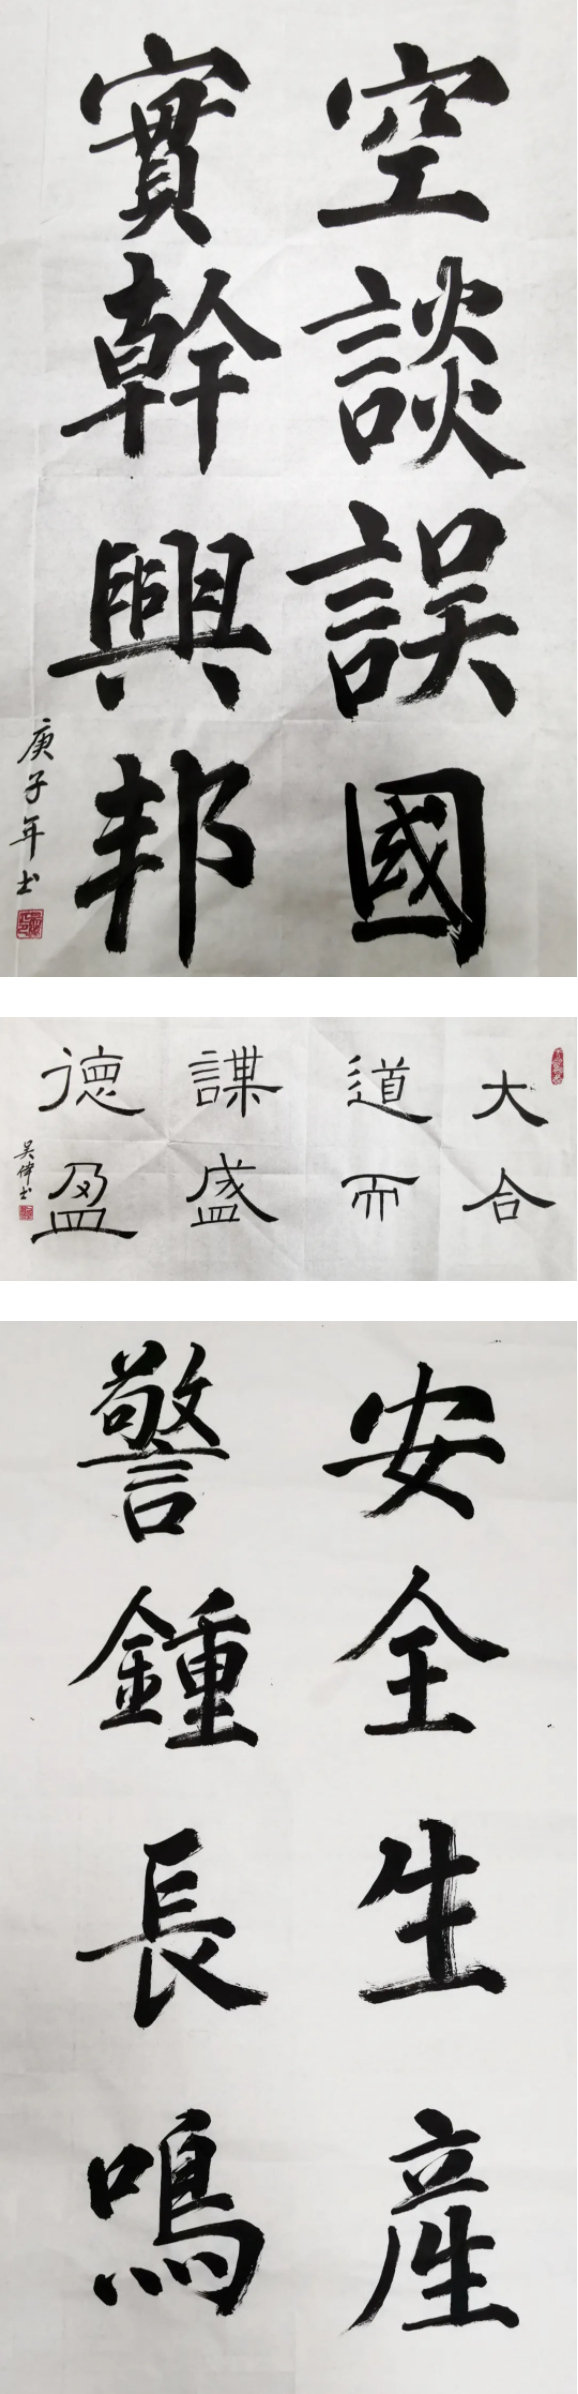 空談誤國
實幹興邦
庚子年书
大合
道而
謀盛
德盈
吴偉书
安全生產
警鍾長鳴